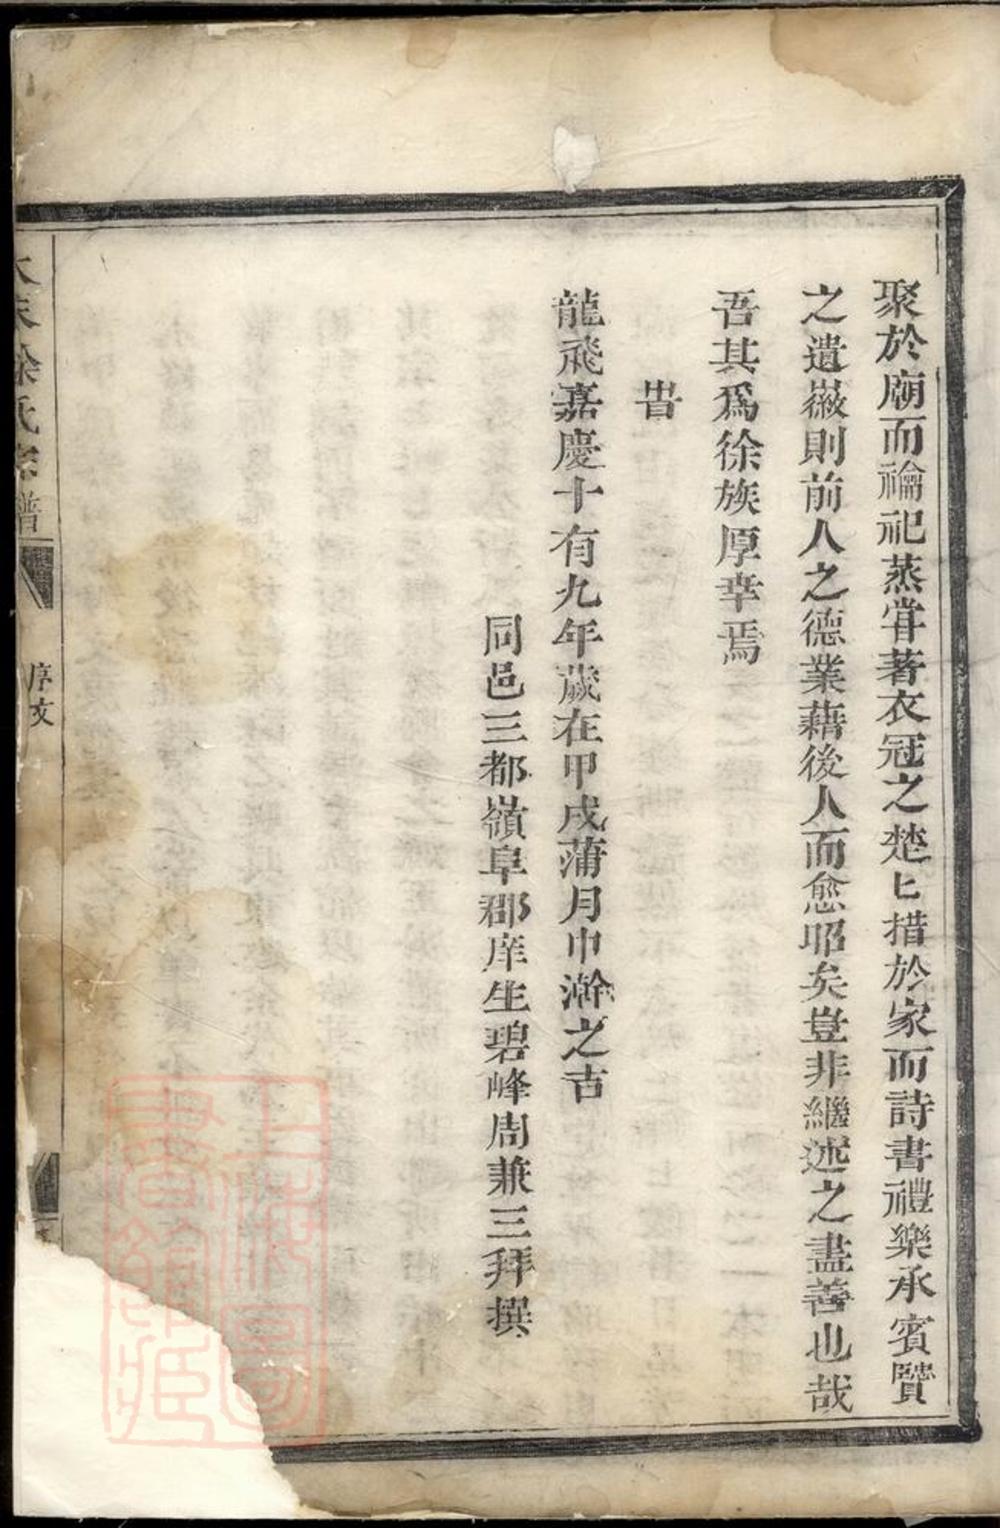 聚於廟而禴祀蒸甞著衣冠之楚匕措於家而詩書禮樂承賓覽
之遺徽則前人之德業藉後人而愈昭矣豈非繼述之盡善也哉
吾其爲徐族厚幸焉
旹
龍飛嘉慶十有九年歲在甲戌蒲月中澣之吉
同邑三都嶺阜郡庠生碧峰周兼三拜撰
大末徐氏宗譜
序文
上海圖書館藏